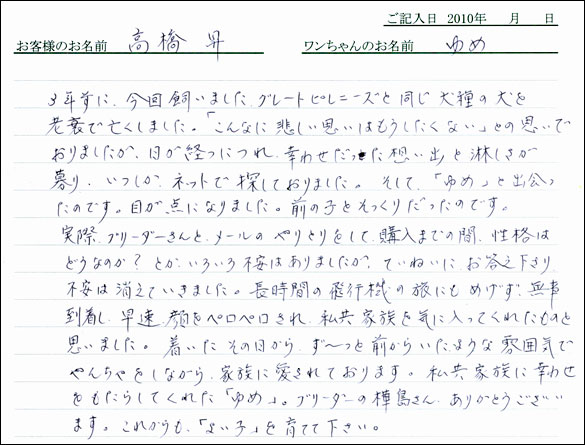 ご記入日 2010年 月 日
お客様のお名前 高橋 昇 ワンちゃんのお名前 ゆめ
3年前に、今回飼いました、グレートピレニーズと同じ犬種の犬を
老衰で亡くしました。「こんなに悲しい思いはもうしたくない」との思いで
おりましたが、日が経つにつれ、幸わせだった想い出と淋しさが
募り、いつしか、ネットで探しておりました。そして、「ゆめ」と出会っ
たのです。目が点になりました。前の子とそっくりだったのです。
実際、ブリーダーさんと、メールのやりとりをして、購入までの間、性格は
どうなのか?とか、いろいろ不安はありましたが、ていねいにお答え下さり
不安は消えていきました。長時間の飛行機の旅にもめげず、無事
到着し、早速、顔をペロペロされ、私共家族を気に入ってくれたものと
思いました。着いたその日から、ず〜っと前からいたような雰囲気で
やんちゃをしながら、家族に愛されております。私共家族に幸わせ
をもたらしてくれた「ゆめ」。ブリーダーの樺島さん、ありがとうござい
ます。これからも、「よい子」を育てて下さい。